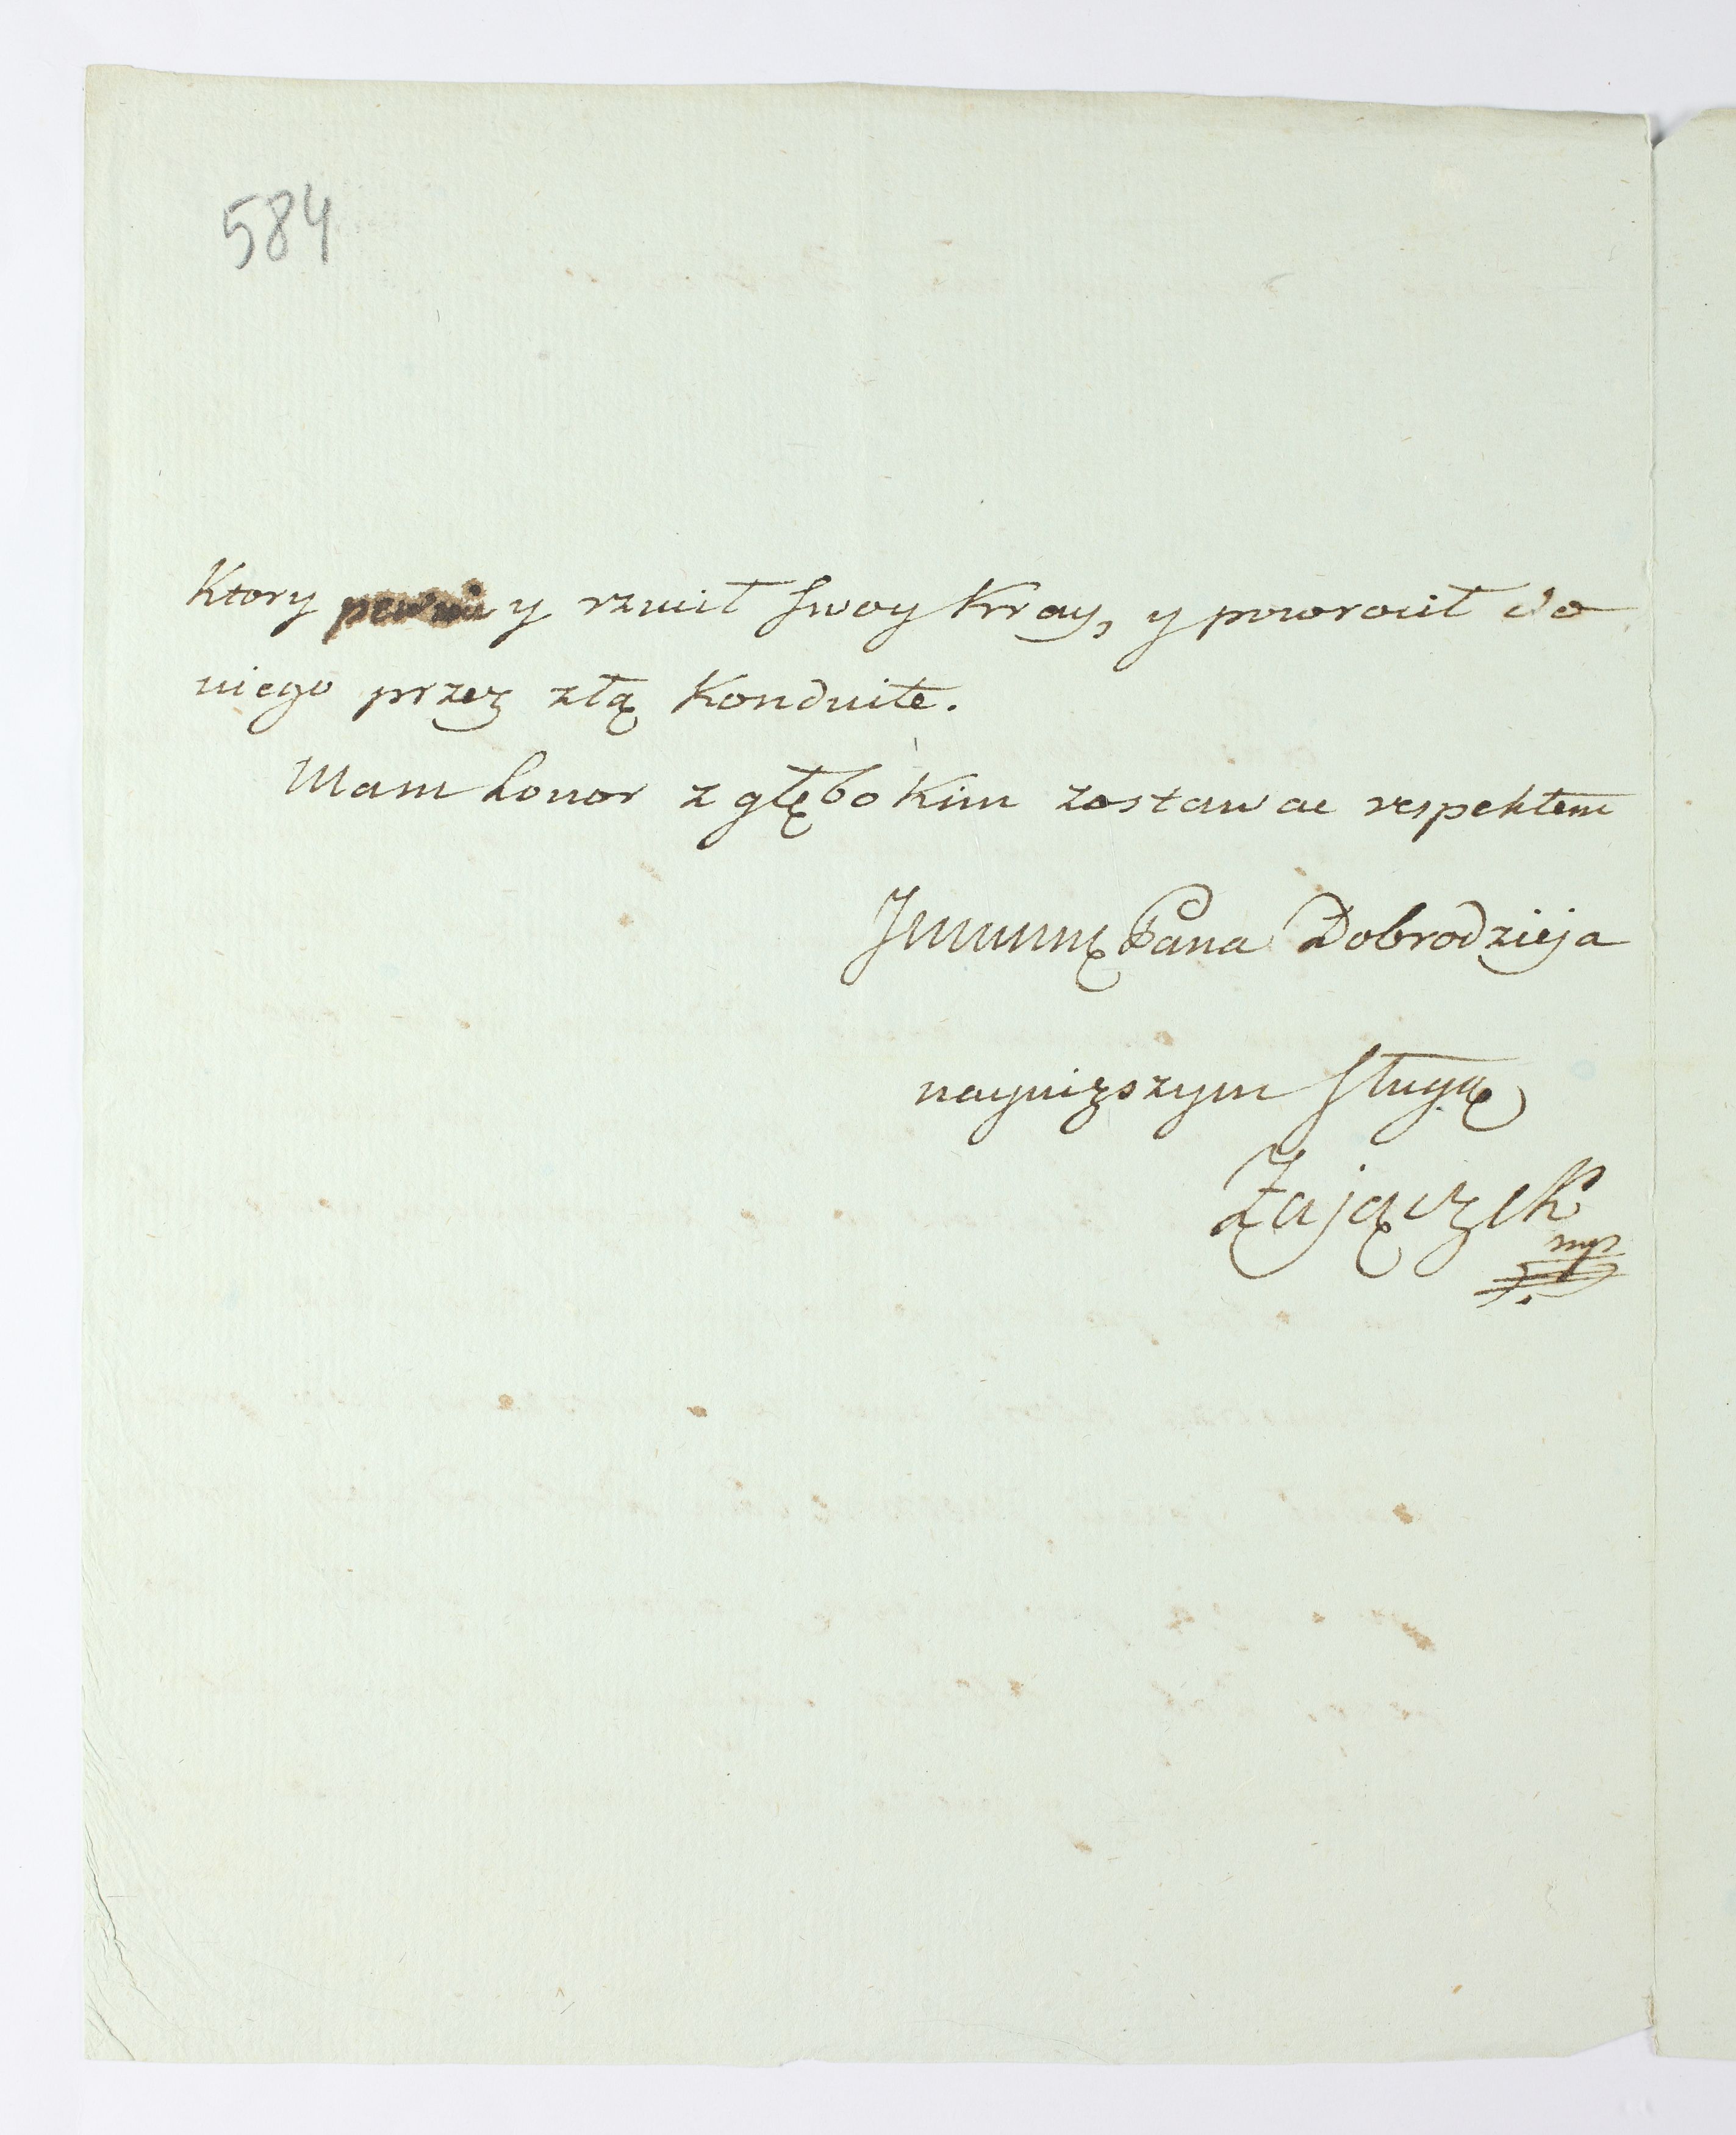 584
Ktory pewnie y rzucił swoy Kray, y powrocił do
niego przez złą Konduite.
Mam honor z głębokim zostawac respektem
Pana Dobrodzieja
naynizszym sługą
Zajączek
mp